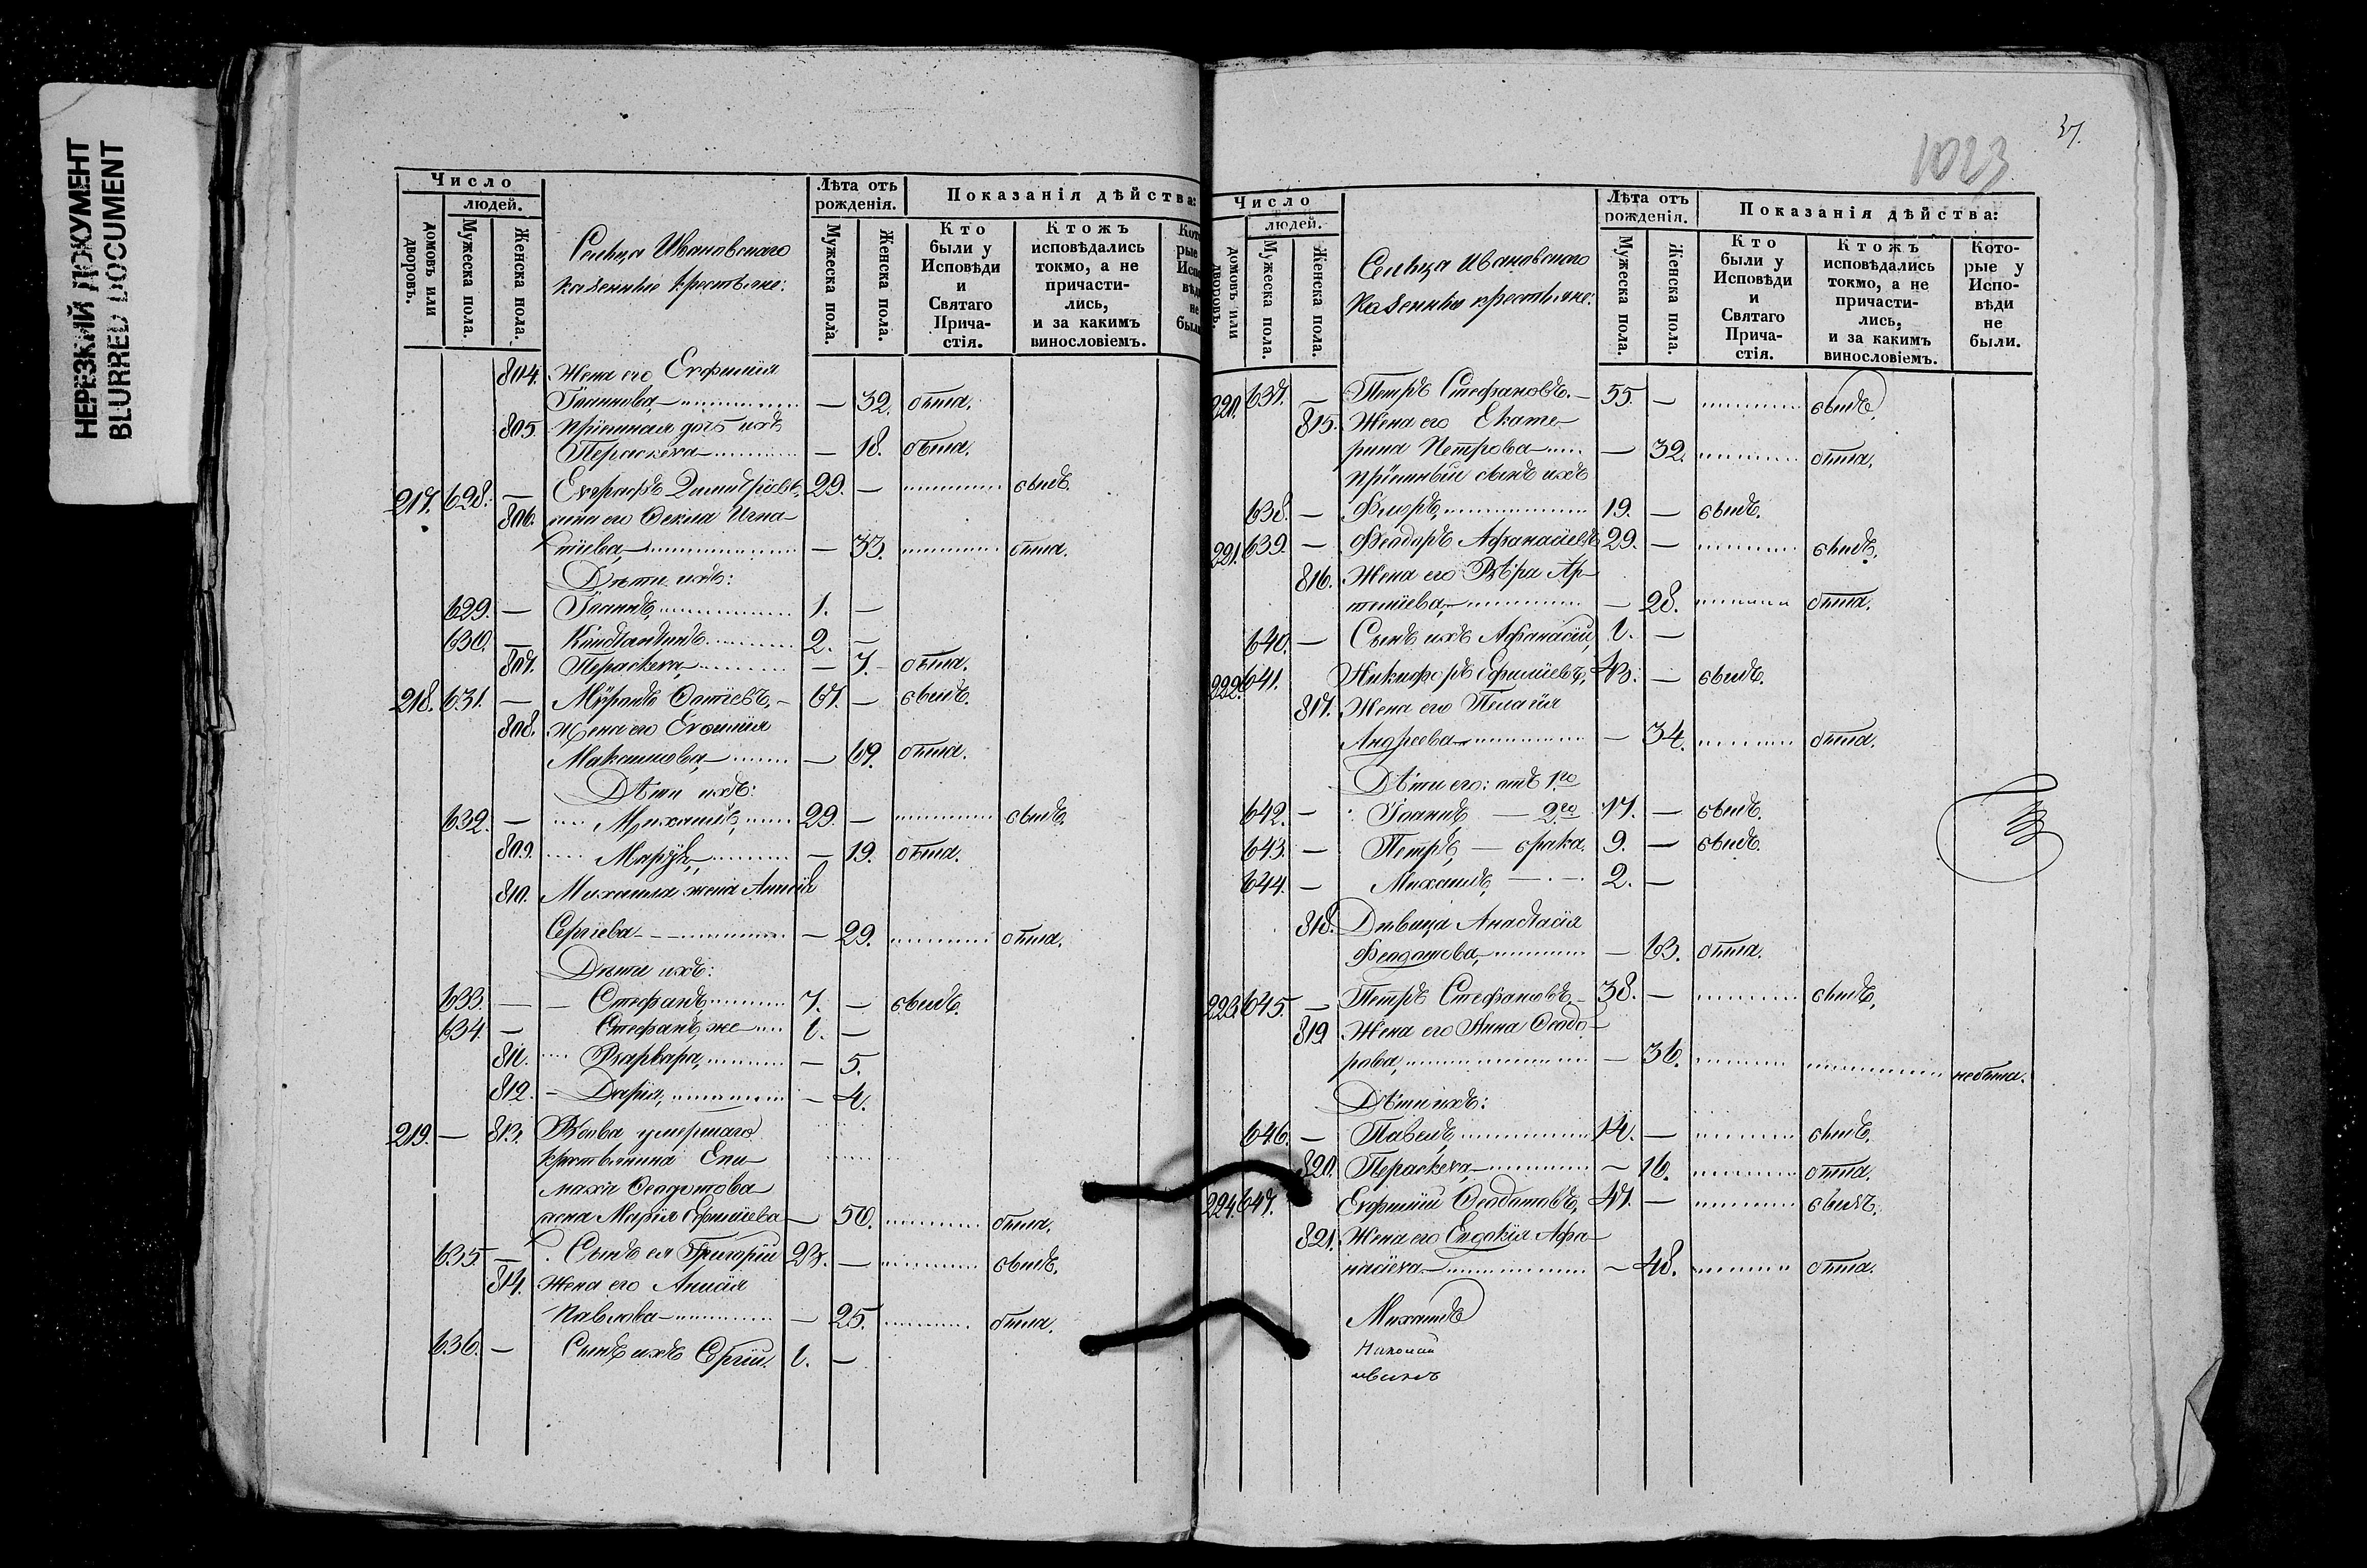 НЕРЕЗКИЙ ДОКУМЕНТ
BLURRED DOCUMENT
Число
людей.
домовъ или дворовъ.
Мужеска пола.
Женска пола.
Сельца Ивановскаго
казенные крестьяне:
Лѣта отъ рожденія.
Мужеска пола.
Женска пола.
Показанія дѣйства:
Кто были у Исповѣди и Святаго Прича-стія.
Ктожъ исповѣдались токмо, а не причасти-лись, и за какимъ винословіемъ.
804. Жена его Евфимія
Іоаннова, — 32. была.
805. Пріемная дочь ихъ
Параскева — 18. была.
217. 628. — Евграфъ Димитріевъ, 29. — былъ.
806. жена его Ѳекла Игна-
тіева, — 33. была.
Дѣти ихъ:
629. — Іоаннъ, 1. —
630. — Константинъ 2. —
807. Параскева, — 7. была.
218. 631. — Фотіевъ, — 67. — былъ.
808. Жена его Евфимія
Максимова, — 69. была.
Дѣти ихъ:
632. — Михаилъ, 29. — былъ.
809. Марія, — 19. была.
810. Михаила жена Анисія
Сергіева — 29. была.
Дѣти ихъ:
633. — Стефанъ 7. — былъ.
634. — Стефанъ же 1. —
811. Варвара, — 5.
812. — Дарія, — 4.
219. — 813. Вдова умершаго
крестьянина Епи-
маха Ѳеодотова
жена Марія Ефимиева — 50. была.
635. — Сынъ ея Григорій 23. — былъ.
814. Жена его Анисія
Павлова — 25. была.
636. — Сынъ ихъ Сергій. 1. —
1023
37.
Число
людей.
домовъ или дворовъ.
Мужеска пола.
Женска пола.
Сельца Ивановскаго
Казенные крестьяне:
Лѣта отъ рожденія.
Мужеска пола.
Женска пола.
Показанія дѣйства:
Кто были у Исповѣди и Святаго Прича-стія.
Ктожъ исповѣдались токмо, а не причасти-лись, и за какимъ винословіемъ.
Кото-рые у Испо-вѣди не были.
220. 637. — Петръ Стефановъ. — 55. — былъ.
815. Жена его Екате-
рина Петрова — 32. была.
пріемный сынъ ихъ
638. — Флоръ, 19. — былъ.
221. 639. — Феодоръ Афанасіевъ 29. — былъ.
816. Жена его Вѣра Ар-
теміева, — 28. была.
640. — Сынъ ихъ Афанасій, 1. —
222. 641. Никифоръ Ефиміевъ, 43. — былъ.
817. Жена его Пелагія
Андреева — 34. была.
Дѣти его: отъ 1го
642. — Іоаннъ — 2го 17. — былъ.
643. — Петръ, — брака. 9. — былъ.
644. — Михаилъ, 2. —
818. Дѣвица Анастасія
Феодотова, — 63. была.
223. 645. — Петръ Стефановъ, — 38. — былъ.
819. Жена его Анна Ѳеодо-
рова, — 36. не была.
Дѣти ихъ:
646. — Павелъ, 14. — былъ.
820. Параскева, — 16. была.
224. 647. Евфимій Ѳеодотовъ, 47. — былъ.
821. Жена его Евдокія Афа-
насіева — 48. была.
Михаилъ